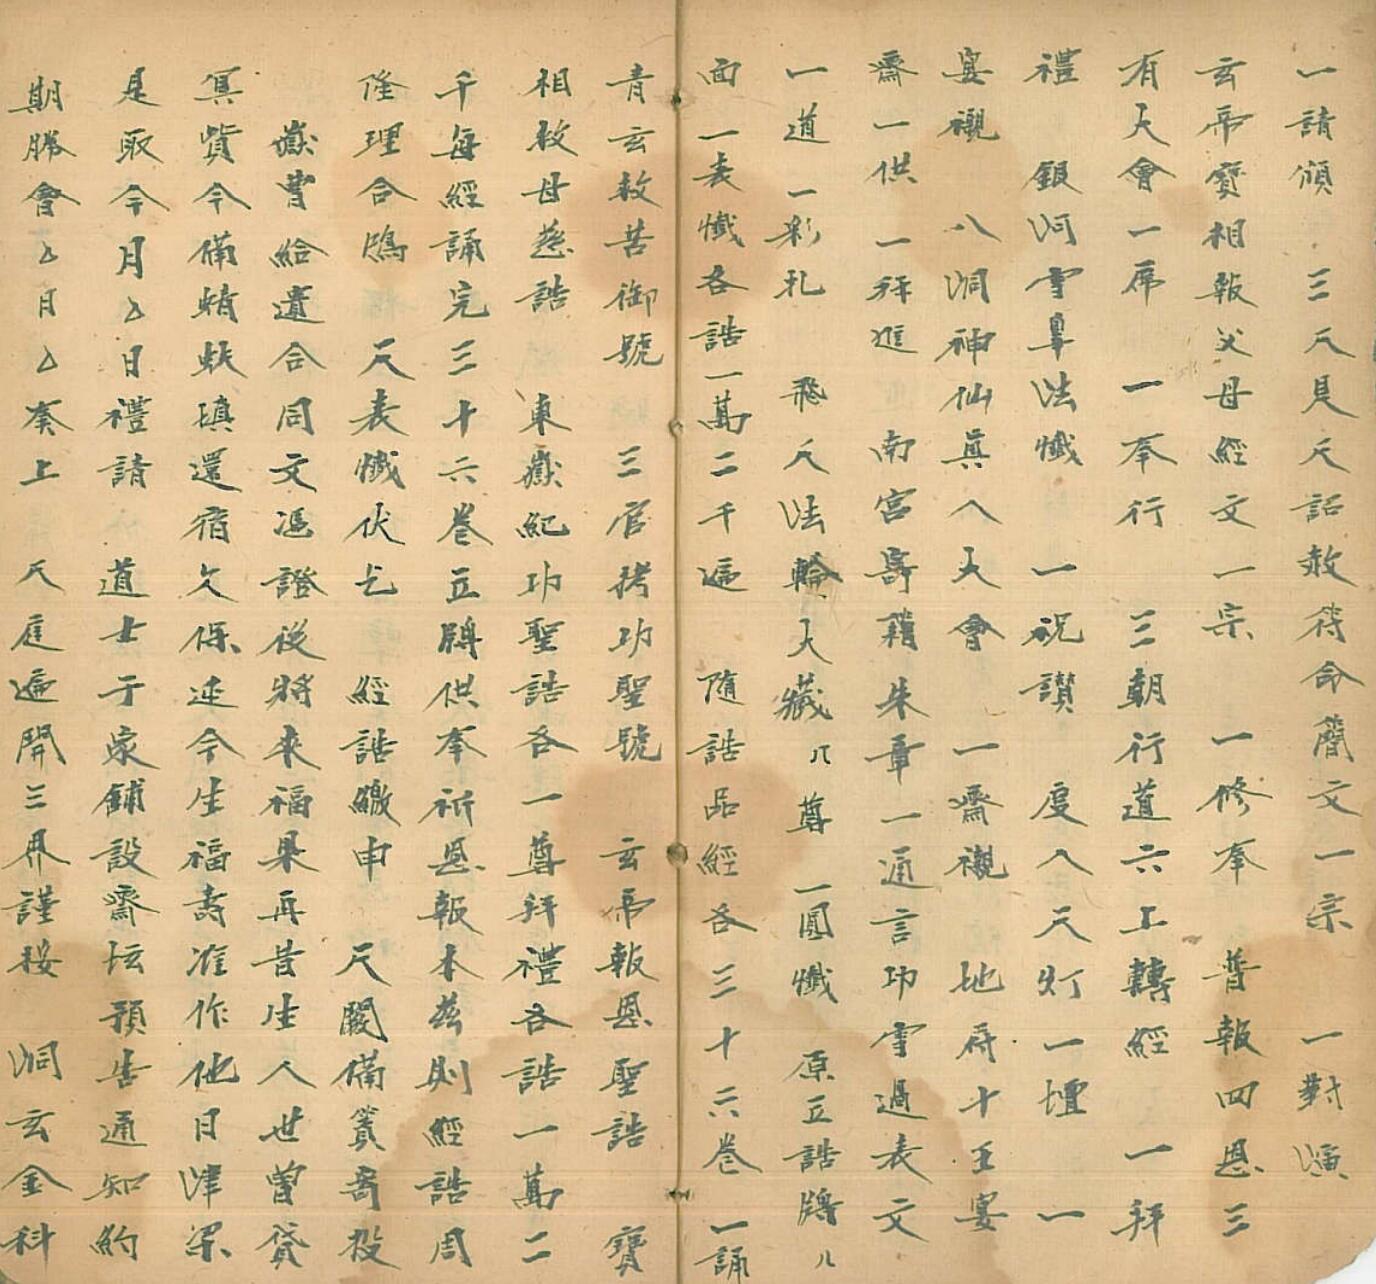 一請頒 三天見天詔赦待命簡文一宗 一對演
玄帝寶相報父母經文一宗 一修奉 普報四恩三
有大會一席 一奉行 三朝行道六上轉經 一拜
禮 銀河雪辜法懺 一祝讃 度人天灯一壇 一
宴襯 八洞神仙眞人大會 一齋襯 地府十王宴
齋一供 一拜進 南宮壽籍朱章一通言功雪過表文
一道 一彩札 飛天法輪大藏 八尊 一圓懺 原立誥牌 八
面 一表懺各誥一萬二千遍 隨誥品經各三十六巻 一誦
青玄救苦御號 三官拷功聖號 玄帝報恩聖誥 寶
相救母慈誥 東嶽紀功聖誥各一尊拜禮各誥一萬二
千每經誦完三十六巻立牌供奉祈恩報本兹則經誥周
隆理合 天表懺伏乞 經誥繳申 天闕備簀寄投
嶽曹給遺合同文憑證後將來福果再昔生人世曽貸
冥貲今備蜻蚨填還宿欠保延今生福壽准作他日津梁
是取今月厶日禮請 道士于家舖設齋坛預告通知約
期勝會厶月厶奏上 天庭遍開三界謹按 洞玄金科